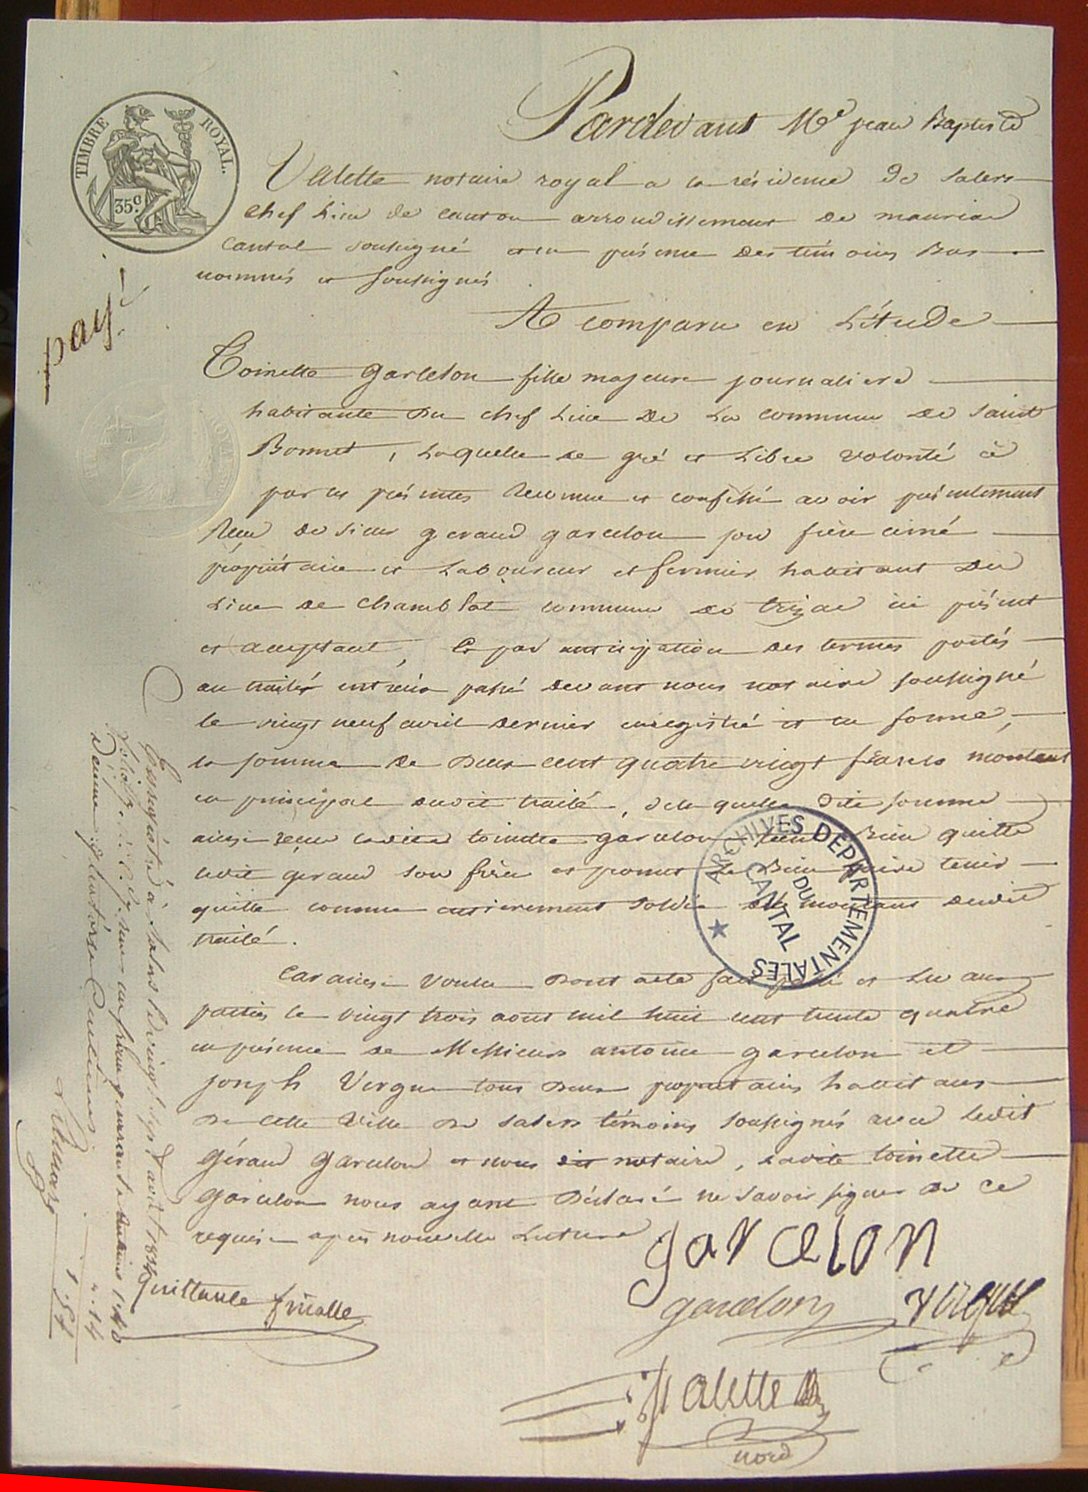 TIMBRE ROYAL.
35c
payé
Pardevant Me jean Baptiste
Valette notaire royal a la résidence de Salers
chef Lieu de canton arrondissement de mauriac
Cantal soussigné et en présence des témoins Bas
nommés et soussignés
A comparu en L'étude
Toinette garcelon fille majeure journaliere
habitante du chef Lieu de La commune de Saint
Bonnet, Laquelle de gré et Libre volonté a
par ces présentes Reconnu et confessé avoir présentement
Reçu de sieur geraud garcelon son frère
propriétaire et Laboureur et fermier habitant du
Lieu de Chamblat commune de trizac ici présent
et acceptant, Et par anticipation des termes portés
au traité entr'eux passé devant nous notaire soussigné
le vingt neuf avril dernier enregistré et en forme,
la somme de Deux cent quatre vingt francs montant
en principal dudit traité, de laquelle dite somme
ainsi reçue ladite toinette garcelon tient Bien quitte
ledit geraud son frère et promet le Bien faire tenir
quitte comme entierement soldée du montant dudit
traité.
Car ainsi Voulu Dont acte fait passé et Lu aux
parties le vingt trois aout mil huit cent trente quatre
en présence de Messieurs antoine garcelon et
Joseph Vergne tous deux propriétaires habitans
de cette Ville de Salers témoins soussignés avec Ledit
géraud garcelon et nous dit notaire, Ladite toinette
garcelon nous ayant Déclaré ne Savoir signer de ce
requise après nouvelle Lecture
garcelon
garcelon vergne
quittance finalle
Valette
nord
ARCHIVES DEPARTEMENTALES
DU
CANTAL
Enregistré à Salers le vingt